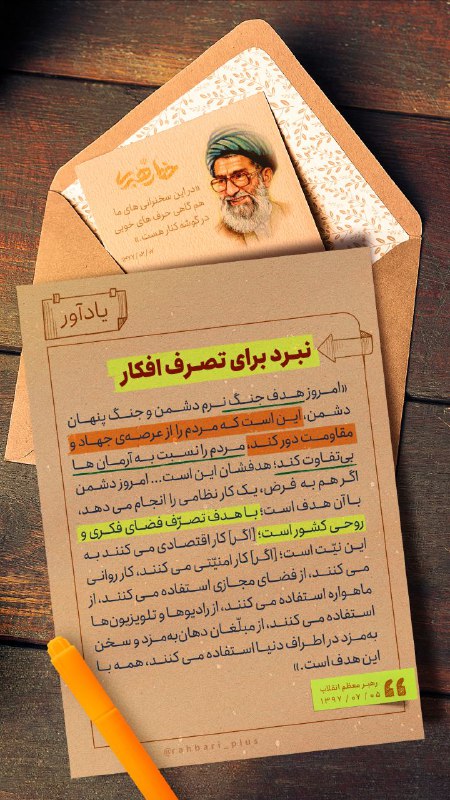 خط رهبری
«در این سخنرانی های ما
هم گاهی حرف های خوبی
در گوشه کنار هست.»
یادآور
نبرد برای تصرف افکار
«امروز هدف جنگ نرم دشمن و جنگ پنهان
دشمن، این است که مردم را از عرصه‌ی جهاد و
مقاومت دور کند، مردم را نسبت به آرمان ها
بی‌تفاوت کند؛ هدفشان این است... امروز دشمن
اگر هم به فرض، یک کار نظامی را انجام می دهد،
با آن هدف است؛ با هدف تصرّف فضای فکری و
روحی کشور است؛ [اگر] کار اقتصادی می کنند به
این نیّت است؛ [اگر] کار امنیّتی می کنند، کار روانی
می کنند، از فضای مجازی استفاده می کنند، از
ماهواره استفاده می کنند، از رادیوها و تلویزیون‌ها
استفاده می کنند، از مبلّغان دهان‌به‌مزد و سخن
به‌مزد در اطراف دنیا استفاده می کنند، همه با
این هدف است.»
رهبر معظم انقلاب
۱۳۹۷ / ۰۷ / ۰۵
@rahbari_plus